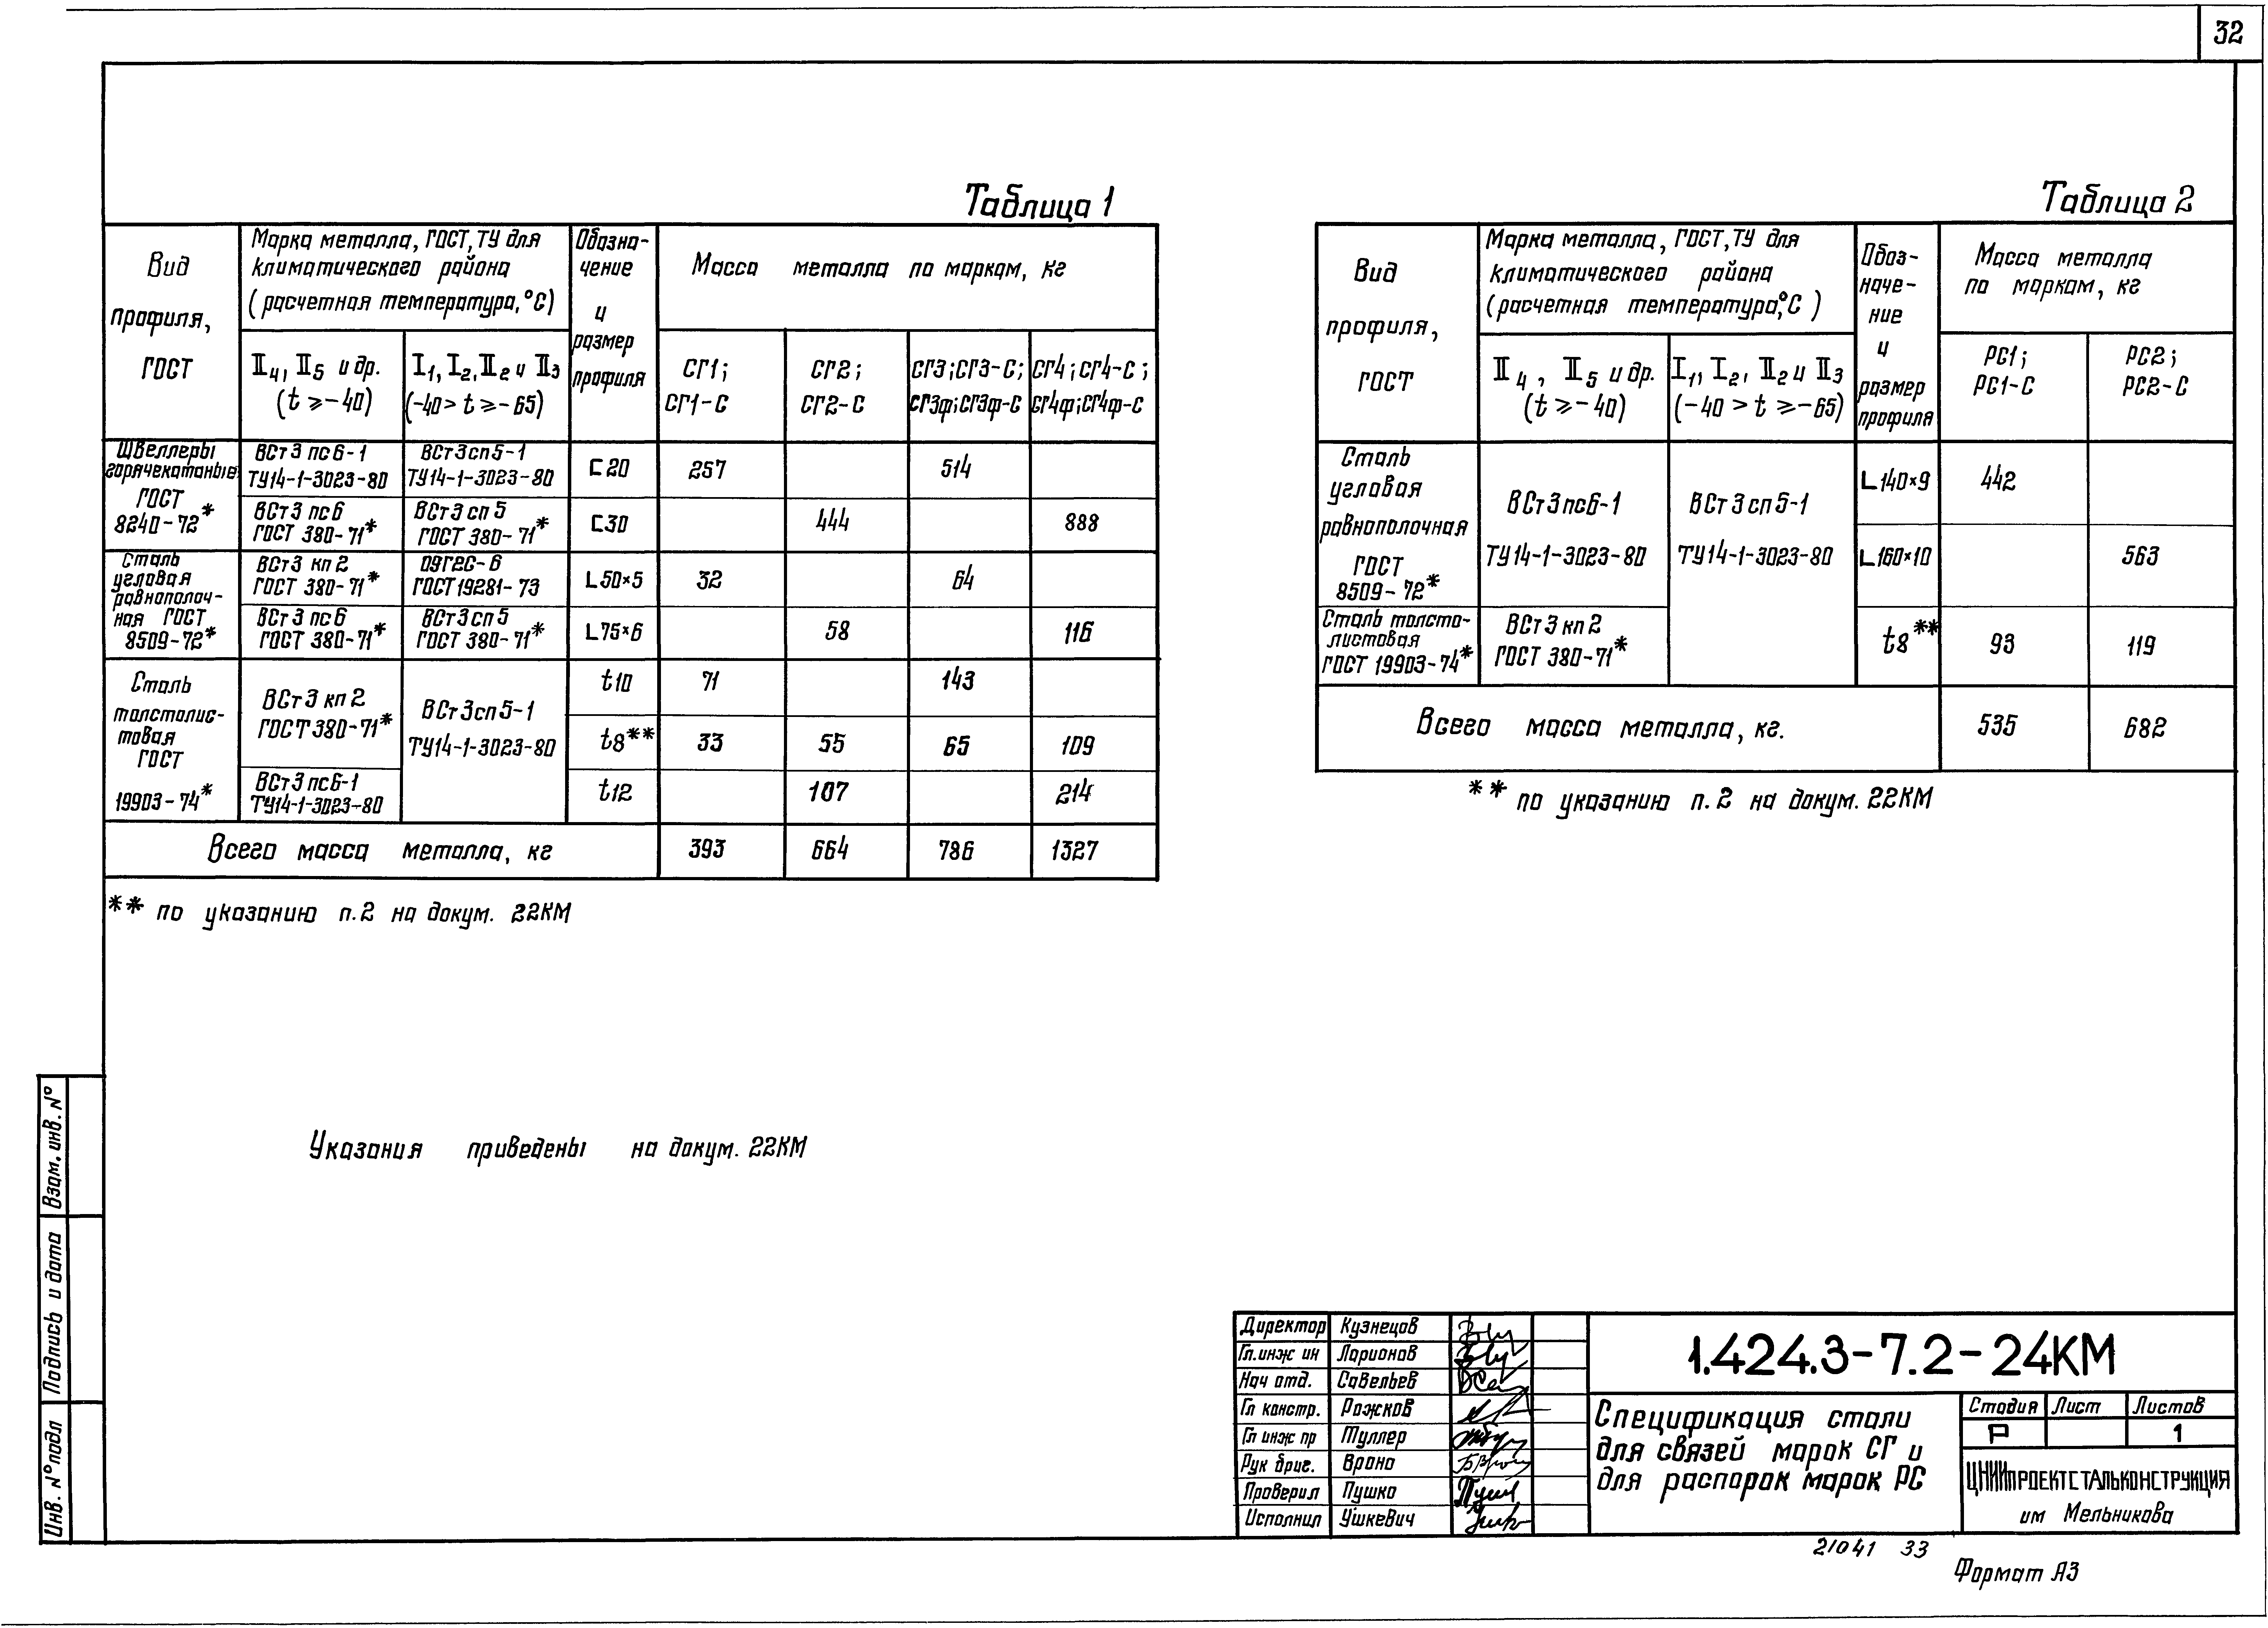 32
Таблица 1
Вид профиля, ГОСТ
Марка металла, ГОСТ, ТУ для
климатического района
(расчетная температура, °С)
Обозна-
чение
и
размер
профиля
Масса металла по маркам, кг
II4, II5 и др.
(t ⩾ -40)
I1, I2, II2 и II3
(-40 > t ⩾ -65)
СГ1;
СГ1-С
СГ2;
СГ2-С
СГ3; СГ3-С;
СГ3ф; СГ3ф-С
СГ4; СГ4-С;
СГ4ф; СГ4ф-С
Швеллеры
горячекатаные
ГОСТ
8240-72*
ВСт3пс6-1
ТУ14-1-3023-80
ВСт3сп5-1
ТУ14-1-3023-80
[20 257 514
ВСт3пс6
ГОСТ 380-71*
ВСт3сп5
ГОСТ 380-71*
[30 444 888
Сталь
угловая
равнополоч-
ная ГОСТ
8509-72*
ВСт3кп2
ГОСТ 380-71*
09Г2С-6
ГОСТ19281-73
L50×5 32 64
ВСт3пс6
ГОСТ 380-71*
ВСт3сп5
ГОСТ 380-71*
L75×6 58 116
Сталь
толстолис-
товая
ГОСТ
19903-74*
ВСт3кп2
ГОСТ380-71*
ВСт3сп5-1
ТУ14-1-3023-80
t10 71 143
t8** 33 55 65 109
ВСт3пс6-1
ТУ14-1-3023-80
t12 107 214
Всего масса металла, кг 393 664 786 1327
** по указанию п.2 на докум. 22КМ
Таблица 2
Вид
профиля,
ГОСТ
Марка металла, ГОСТ, ТУ для
климатического района
(расчетная температура,°С)
Обоз-
наче-
ние
и
размер
профиля
Масса металла
по маркам, кг
II4, II5 и др.
(t ⩾ -40)
I1, I2, II2 и II3
(-40 > t ⩾ -65)
РС1;
РС1-С
РС2;
РС2-С
Сталь
угловая
равнополочная
ГОСТ
8509-72*
ВСт3пс6-1
ТУ14-1-3023-80
ВСт3сп5-1
ТУ14-1-3023-80
L140×9 442
L160×10 563
Сталь толсто-
листовая
ГОСТ 19903-74*
ВСт3кп2
ГОСТ 380-71*
t8** 93 119
Всего масса металла, кг. 535 682
** по указанию п.2 на докум. 22КМ
Указания приведены на докум. 22КМ
Взам. инв. N°
Подпись и дата
Инв. N°подл
Директор Кузнецов
Гл.инж ин Ларионов
Нач отд. Савельев
Гл констр. Рожков
Гл инж пр Туллер
Рук бриг. Врона
Проверил Пушко
Исполнил Ушкевич
1.424.3-7.2-24КМ
Спецификация стали
для связей марок СГ и
для распорок марок РС
Стадия Лист Листов
Р 1
ЦНИИПРОЕКТСТАЛЬКОНСТРУКЦИЯ
им Мельникова
21041 33
Формат А3